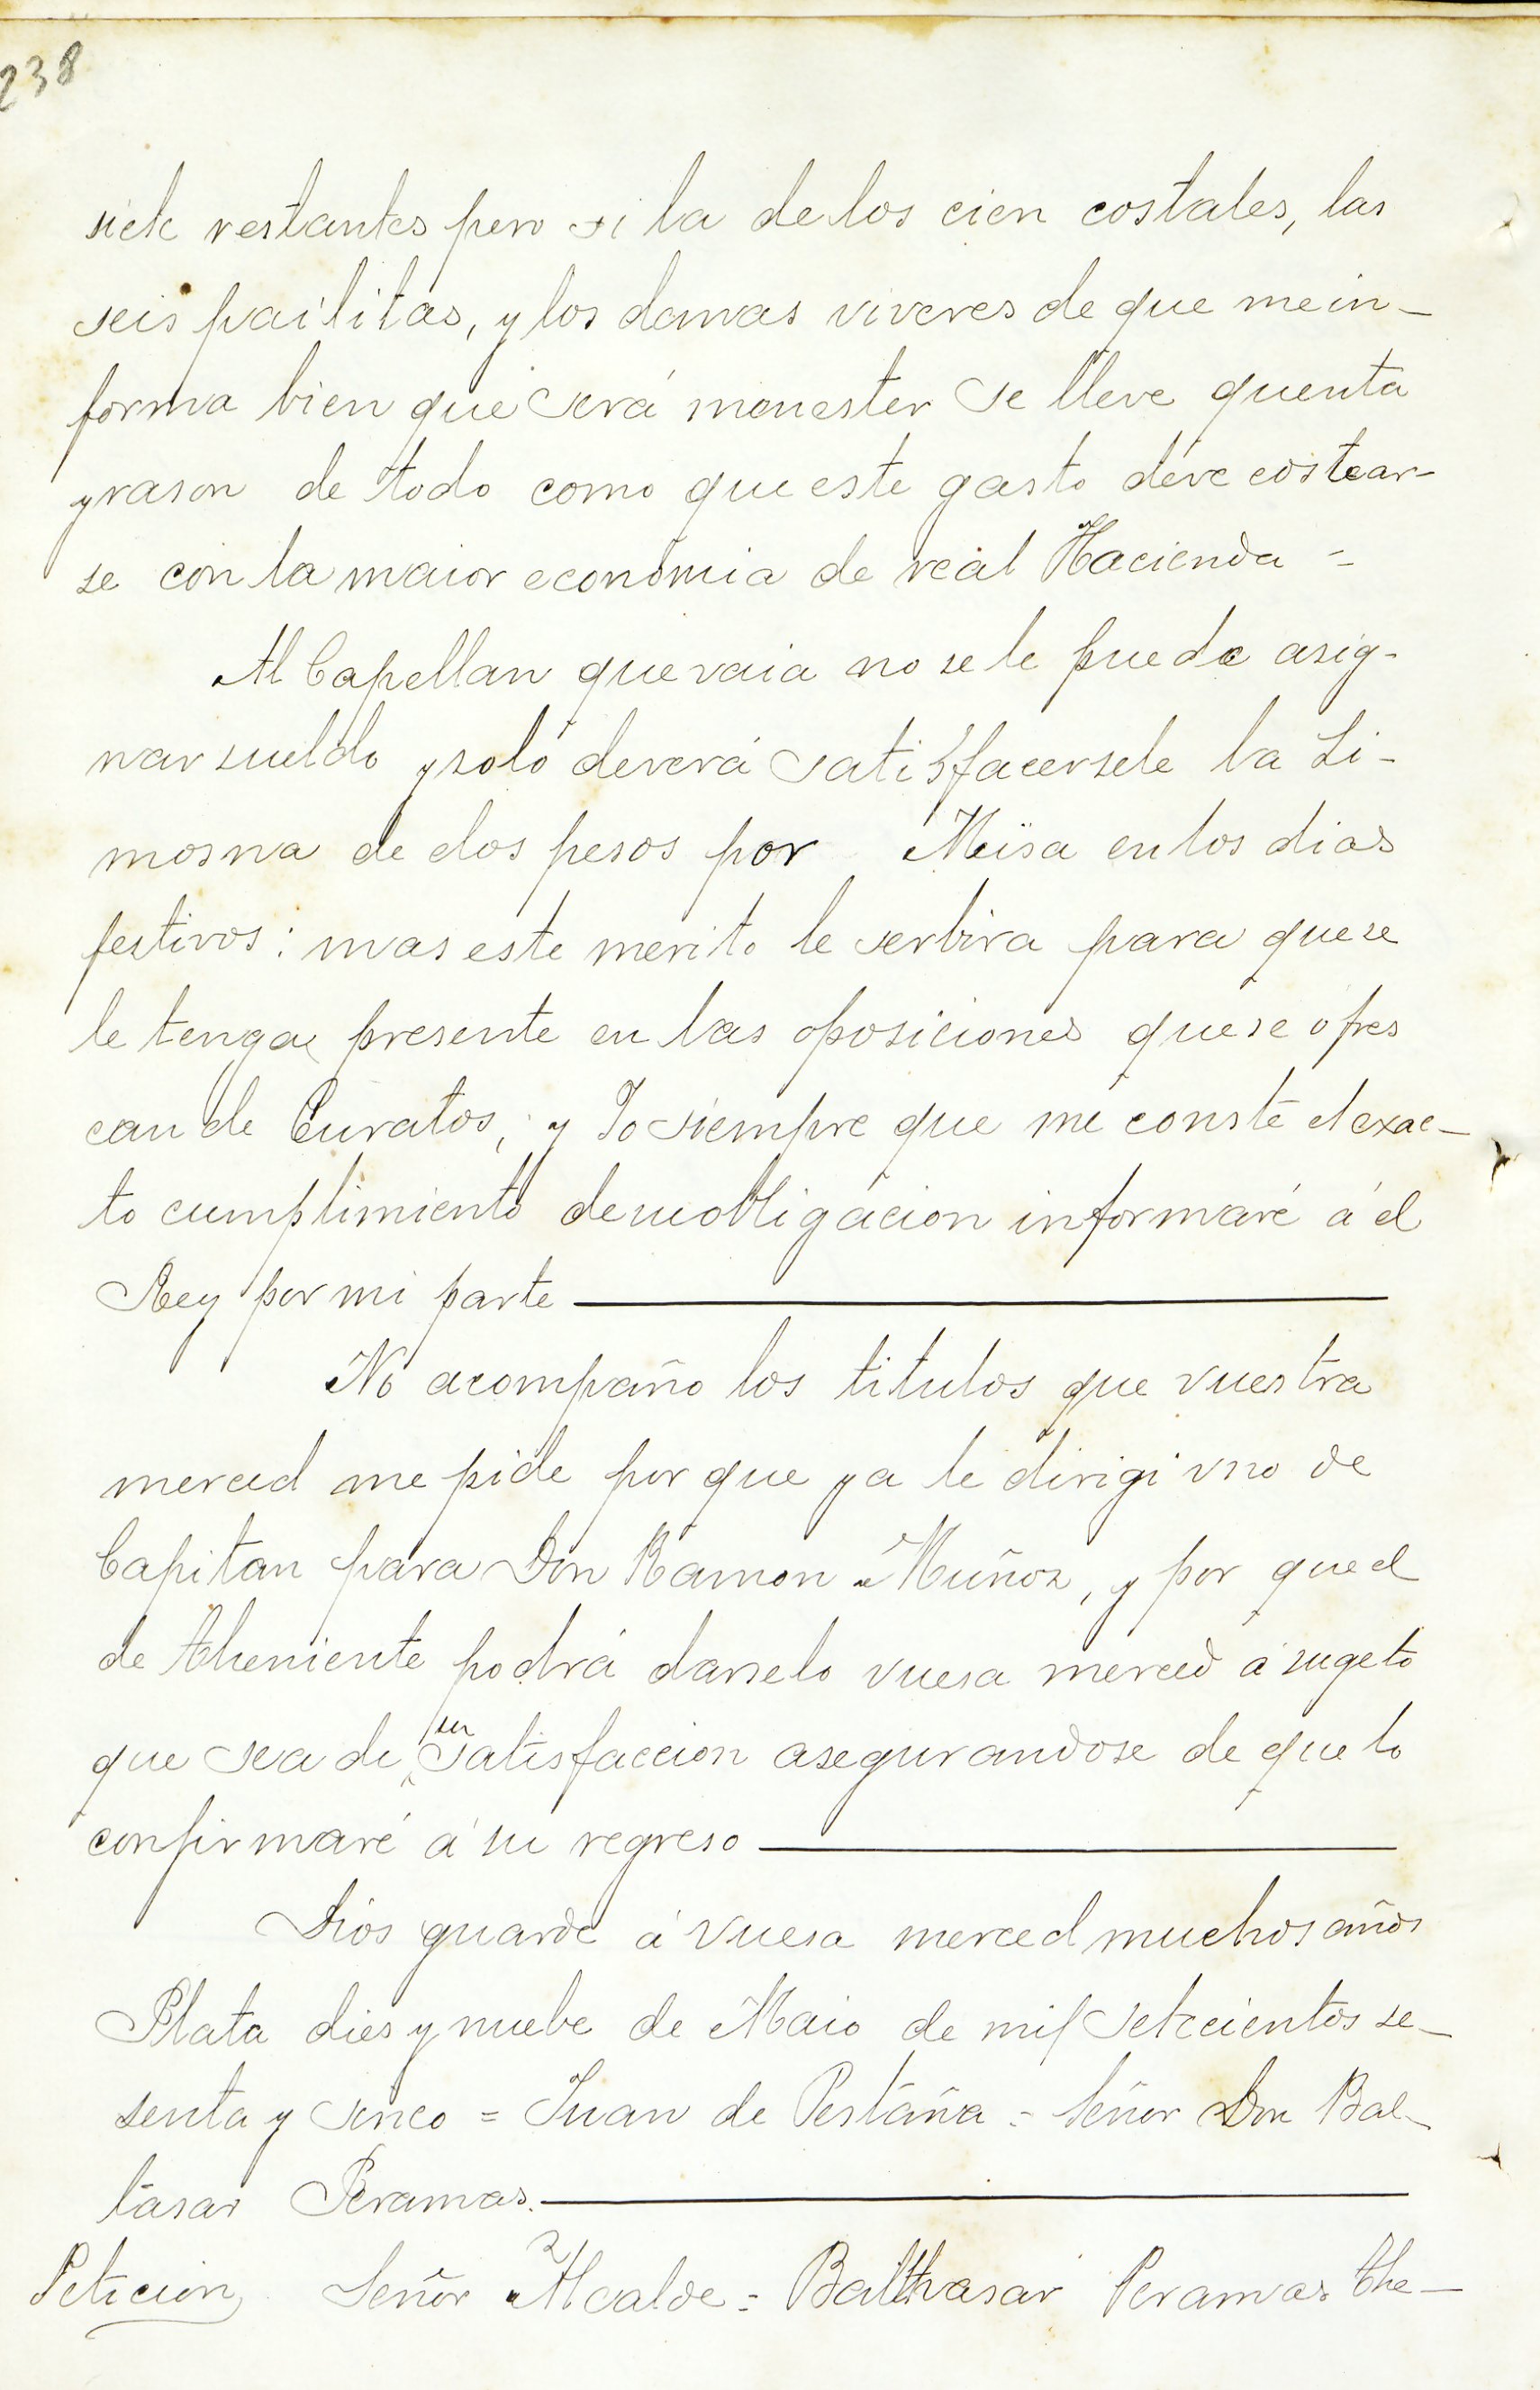 238
siete restantes pero si la de los cien costales, las
seis pailitas, y los demas viveres de que me in-
forma bien que será menester se lleve quenta
y rason de todo como que este gasto deve costear-
se con la maior economia de real Hacienda =
Al Capellan que vaia no se le puede asig-
nar sueldo y solo deverá satisfacersele la Li-
mosna de dos pesos por Misa en los dias
festivos: mas este merito le serbira para que se
le tenga presente en las oposiciones que se ofres
can de Curatos; y Yo siempre que me conste el exac-
to cumplimiento de su obligacion informaré á el
Rey por mi parte
No acompaño los titulos que vuestra
merced me pide por que ya le dirigi vno de
Capitan para Don Ramon Muñoz, y por que el
de theniente podrá darselo vuesa merced á sugeto
que sea de su satisfaccion asegurandose de que lo
confirmaré á su regreso
Dios guarde á vuesa merced muchos años
Plata dies y nuebe de Maio de mil setecientos se-
senta y sinco = Juan de Pestaña = Señor Don Bal-
tasar Peramas.
Peticion Señor Alcalde = Balthasar Peramas the-